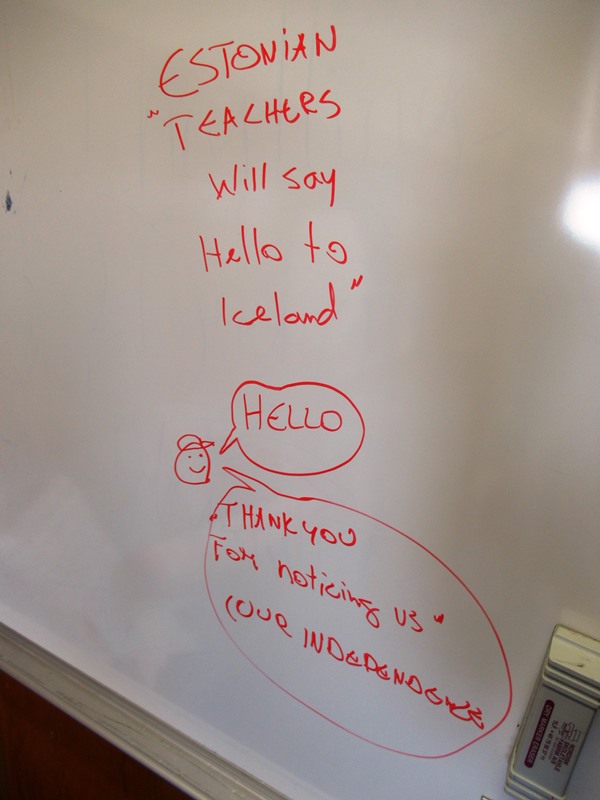 ESTONIAN
"TEACHERS
Will say
Hello to
Iceland"
HELLO
"THANK YOU
For noticing US"
(OUR INDEPENDENCE
DRY MARKER ERASER